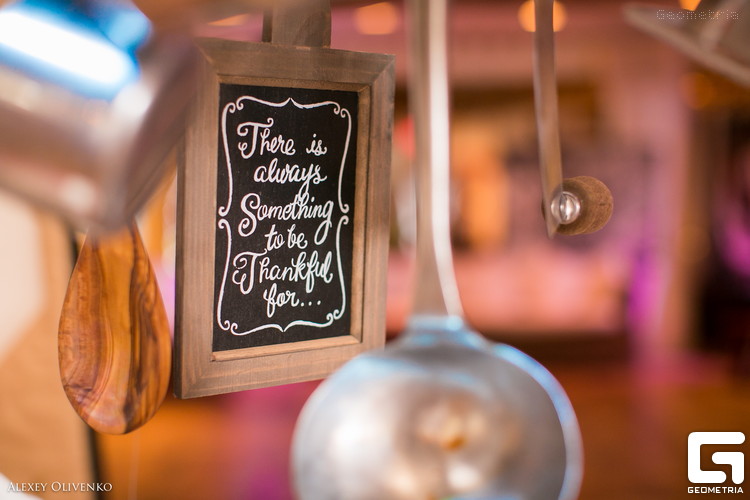 Geometria
There is
always
Something
to be
Thankful
for...
ALEXEY OLIVENKO
GEOMETRIA